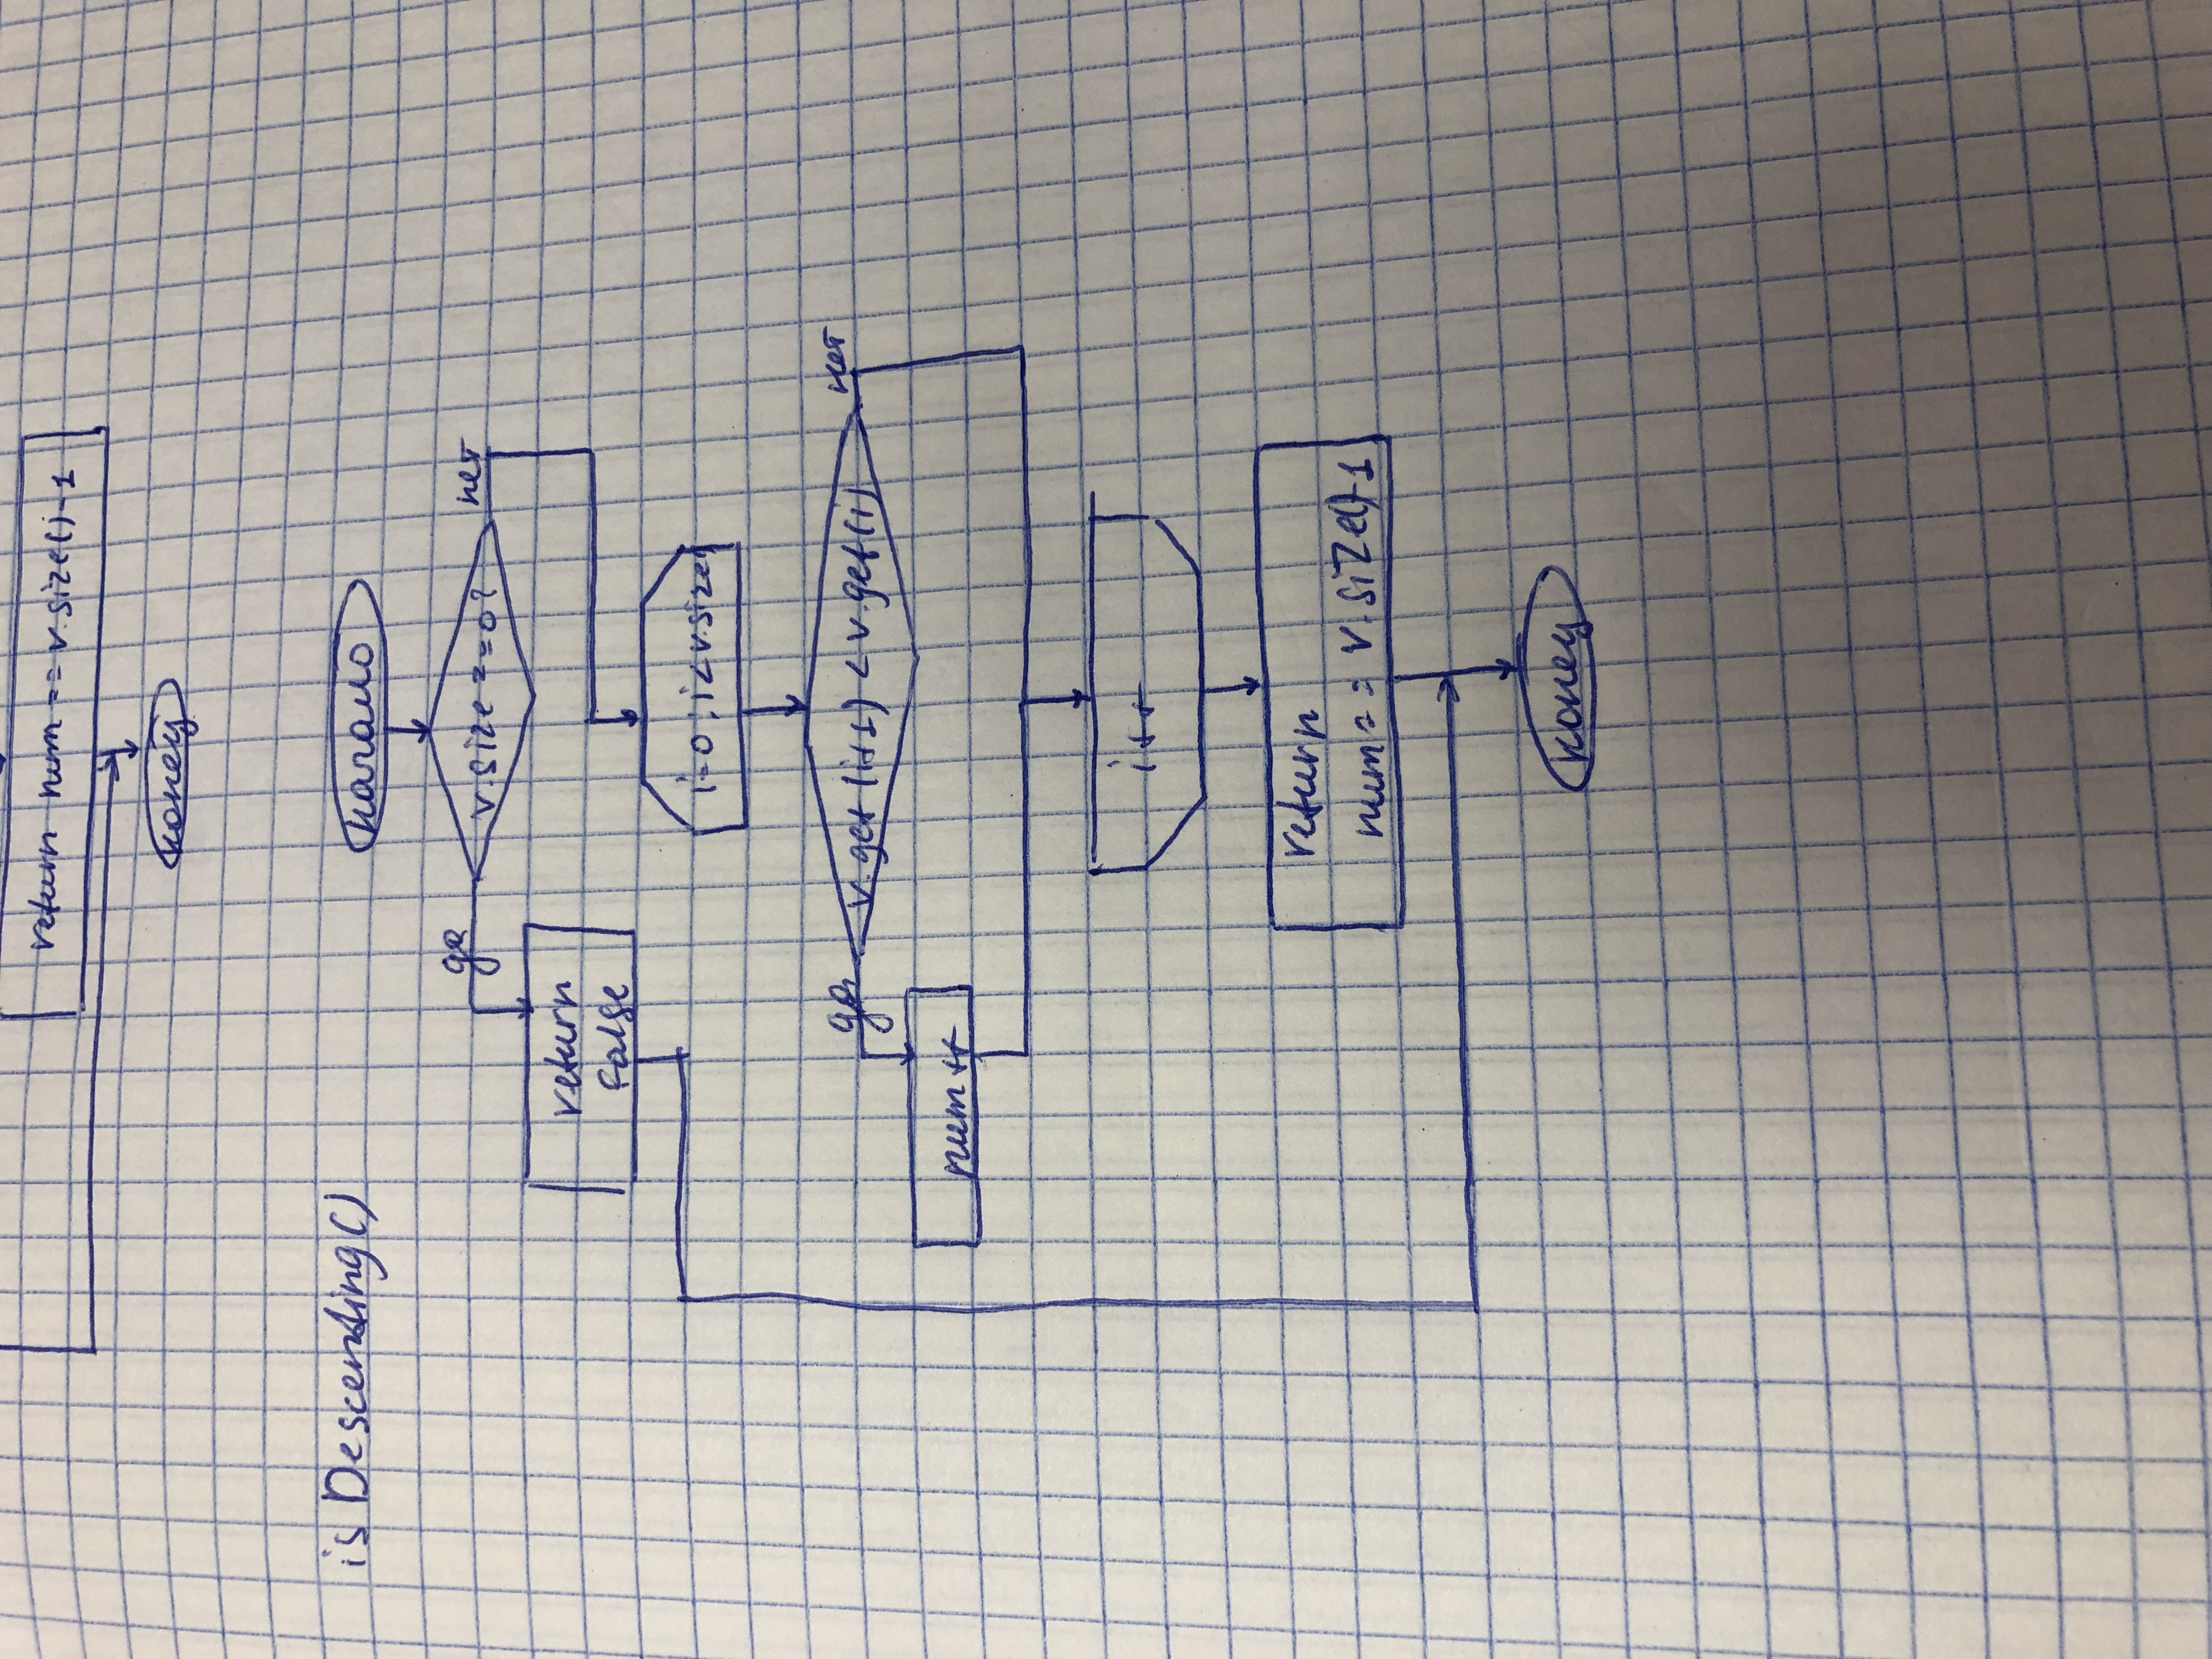 return num == v.size()-1
конец
isDescenting()
начало
v.size==0?
да
нет
return
false
i=0; i<v.size()
v.get(i+1) < v.get(i)
да
нет
num++
i++
return
num == v.size()-1
конец